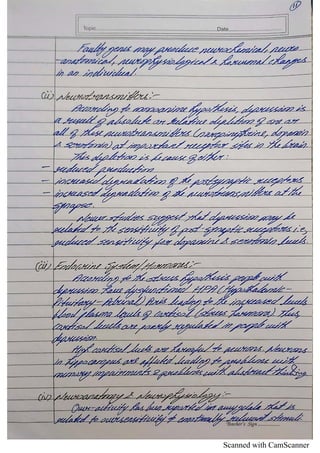 Topic Date
Faulty genes may produce neurochemical, neuro
-anatomical, neurophysiological & hormonal changes
in an individual.
(ii) Neurotransmitters:-
According to monoamine hypothesis, depression is
a result of absolute or relative depletion of one or
all of these neurotransmitters (norepinephrine, dopamin
& serotonin) at important receptor sites in the brain.
This depletion is because of either:
- reduced production
- increased degradation of the postsynaptic receptors
- increased degradation of the neurotransmitters at the
synapse.
Newer studies suggest that depression may be
related to the sensitivity of post-synaptic receptors i.e,
reduced sensitivity for dopamine & serotonin levels.
(iii) Endocrine System/Hormones:-
According to the stress hypothesis people with
depression have dysfunctional HPA (Hypothalamic-
Pituitary-Adrenal) Axis leading to the increased levels
blood plasma levels of cortisol (stress hormone) Thus
cortisol levels are poorly regulated in people with
depression.
High cortisol levels are harmful to neurons. Neurons
in hippocampus are affected leading to problems with
memory impairments & problems with abstract thinking
(iv) Neuroanatomy & Neurophysiology:-
Over-activity has been reported in amygdala that is
related to oversensitivity to emotionally relevant stimuli
Teacher's Sign
Scanned with CamScanner